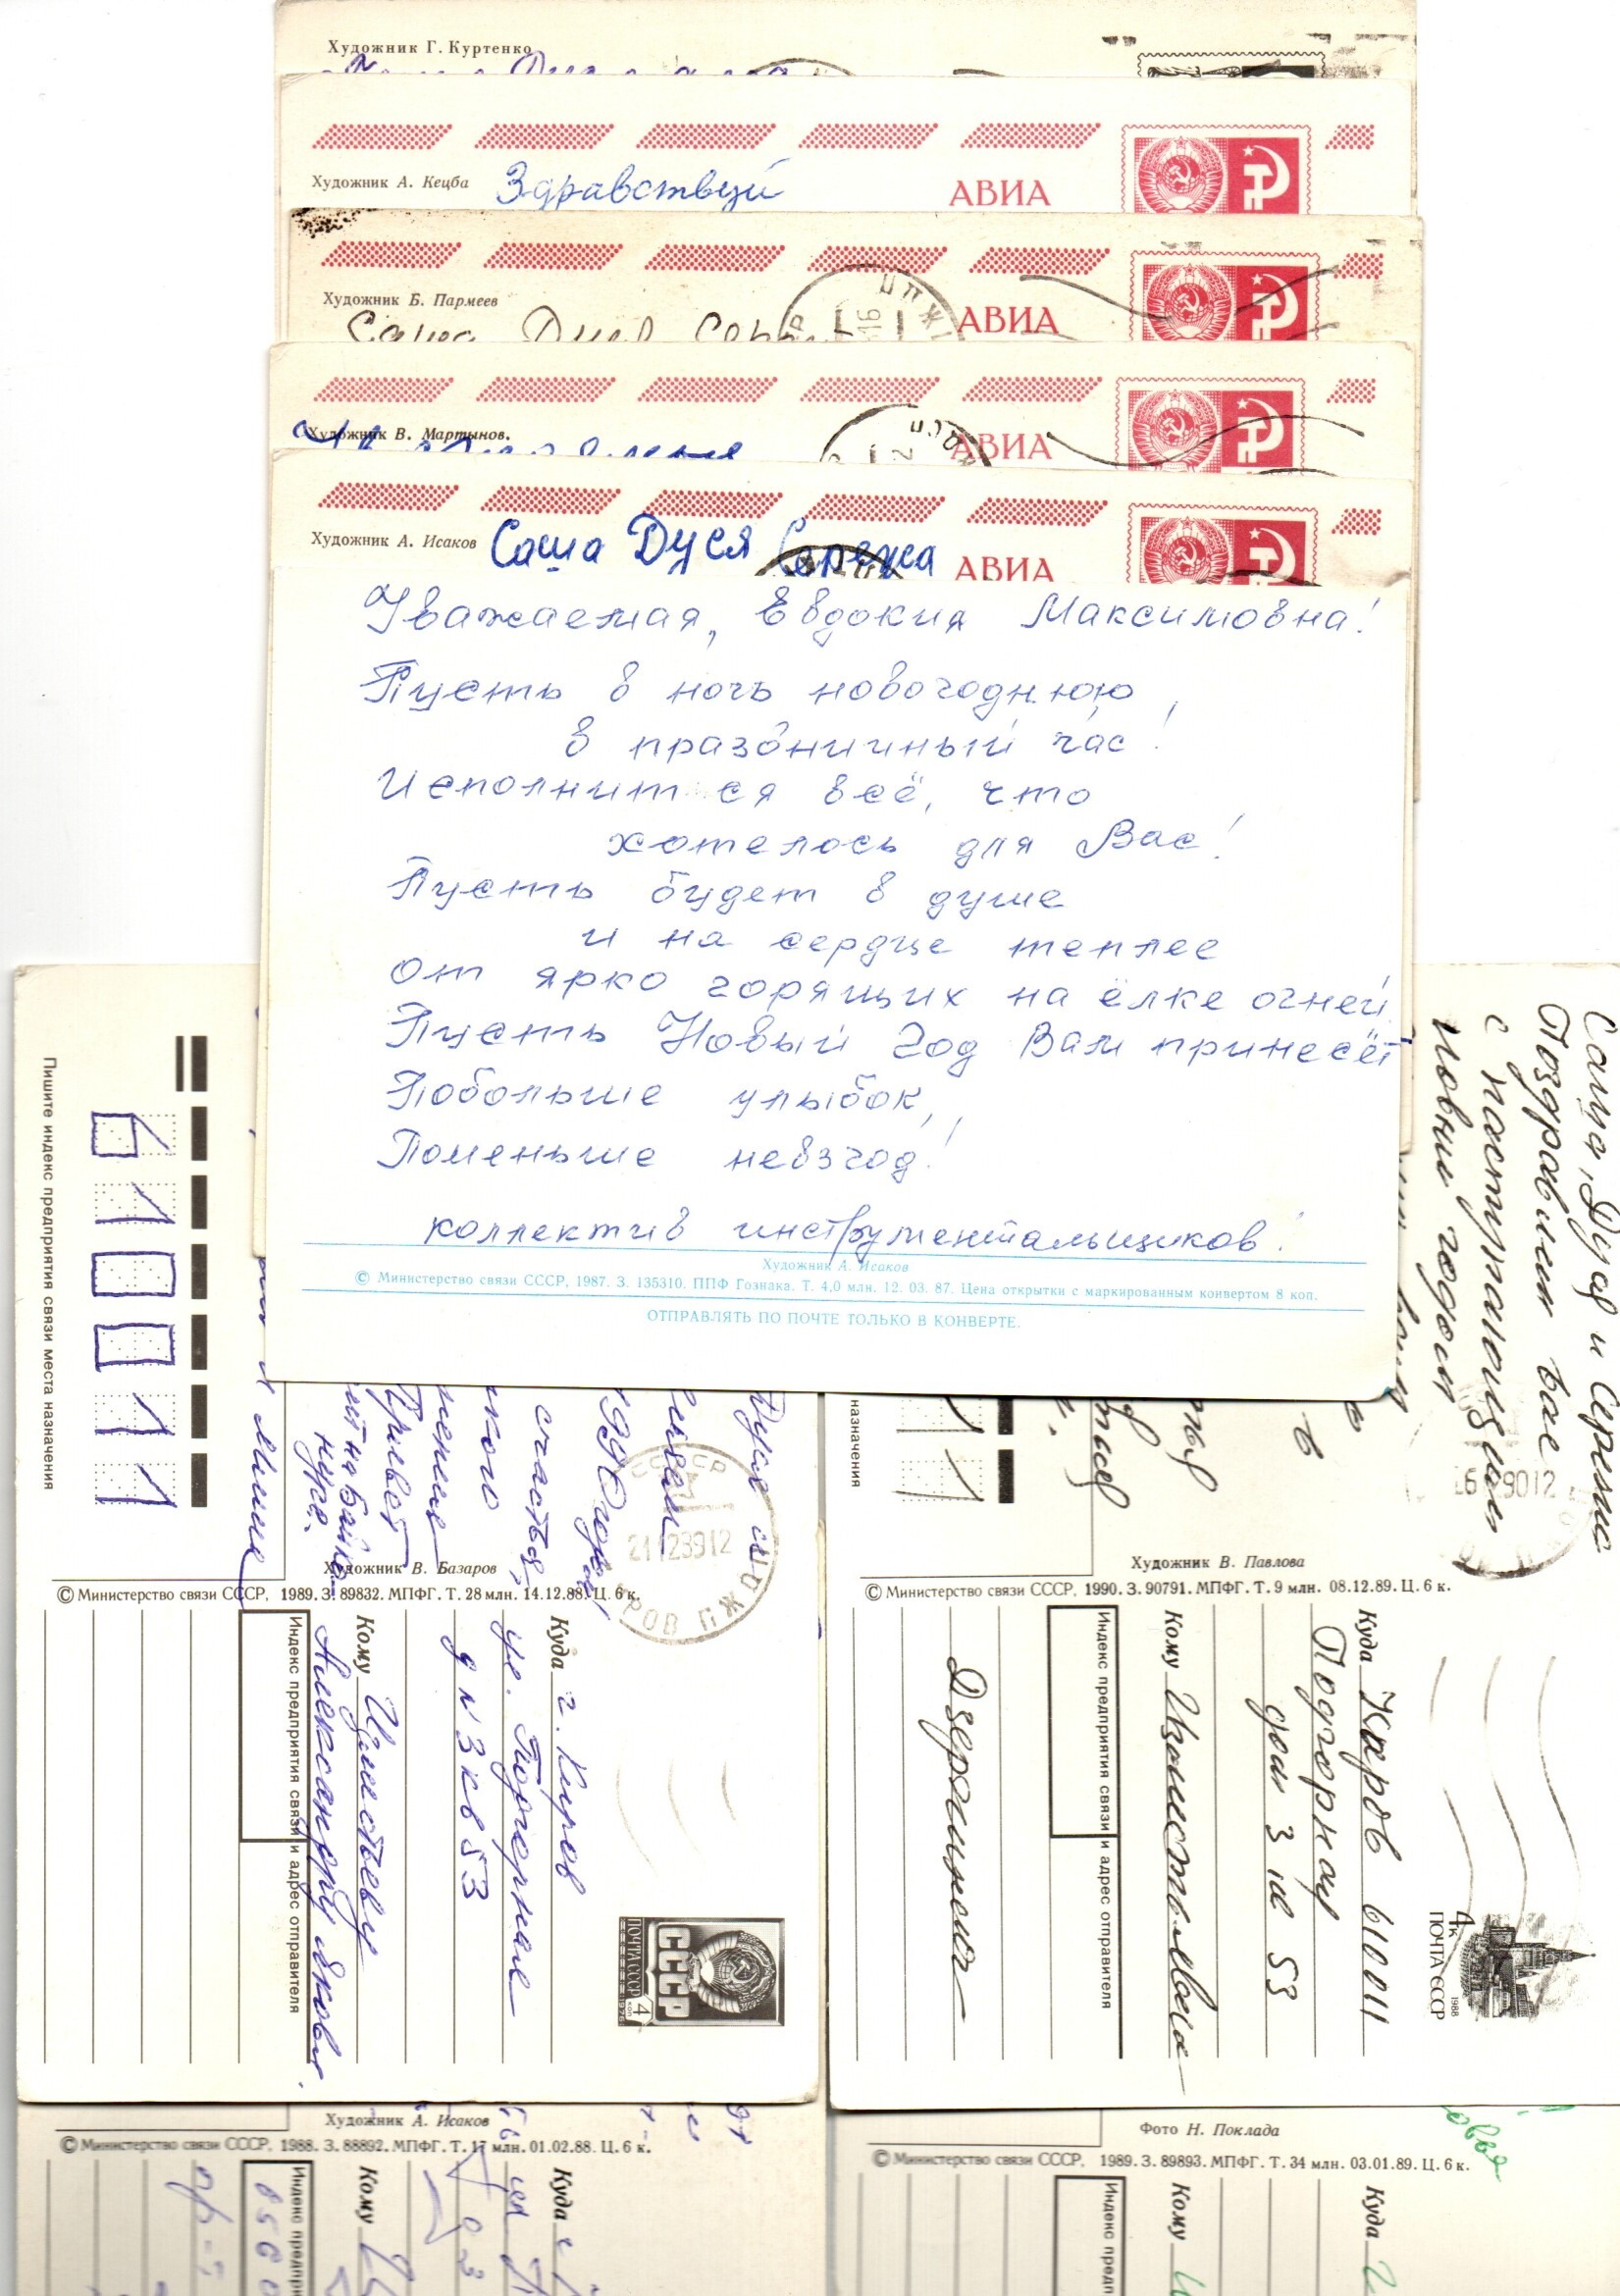 Художник Г. Куртенко
Художник А. Кецба
Здравствуй
АВИА
Художник Б. Пармеев
Саша Дуся
АВИА
Художник В. Мартынов.
АВИА
Художник А. Исаков
Саша Дуся Сережа
АВИА
Уважаемая, Евдокия Максимовна!
Пусть в ночь новогоднюю,
в праздничный час!
Исполнится всё, что
хотелось для Вас!
Пусть будет в душе
и на сердце теплее
От ярко горящих на ёлке огней.
Пусть Новый Год Вам принесёт
Побольше улыбок,
Поменьше невзгод!
коллектив инструментальщиков!
Художник А. Исаков
© Министерство связи СССР, 1987. З. 135310. ППФ Гознака. Т. 4,0 млн. 12. 03. 87. Цена открытки с маркированным конвертом 8 коп.
ОТПРАВЛЯТЬ ПО ПОЧТЕ ТОЛЬКО В КОНВЕРТЕ.
Пишите индекс предприятия связи места назначения
610011
Дуся
1990
счастья,
Привет
Художник В. Базаров
© Министерство связи СССР, 1989. З. 89832. МПФГ. Т. 28 млн. 14.12.88. Ц. 6 к.
Куда г. Киров
ул. Подгорная
д N 3 кв 53
Кому
Александру
Индекс предприятия связи и адрес отправителя
СССР
ПОЧТА СССР
4
Саша, Дуся и Сережа
Поздравляем вас
с наступающим
новым годом
назначения
Художник В. Павлова
© Министерство связи СССР, 1990. З. 90791. МПФГ. Т. 9 млн. 08.12.89. Ц. 6 к.
Куда Киров 610011
Подгорная
дом 3 кв 53
Кому
Индекс предприятия связи и адрес отправителя
4к
ПОЧТА СССР
1988
Художник А. Исаков
© Министерство связи СССР, 1988. З. 88892. МПФГ. Т. 17 млн. 01.02.88. Ц. 6 к.
Куда
Кому
Фото Н. Поклада
© Министерство связи СССР, 1989. З. 89893. МПФГ. Т. 34 млн. 03.01.89. Ц. 6 к.
Куда
Кому